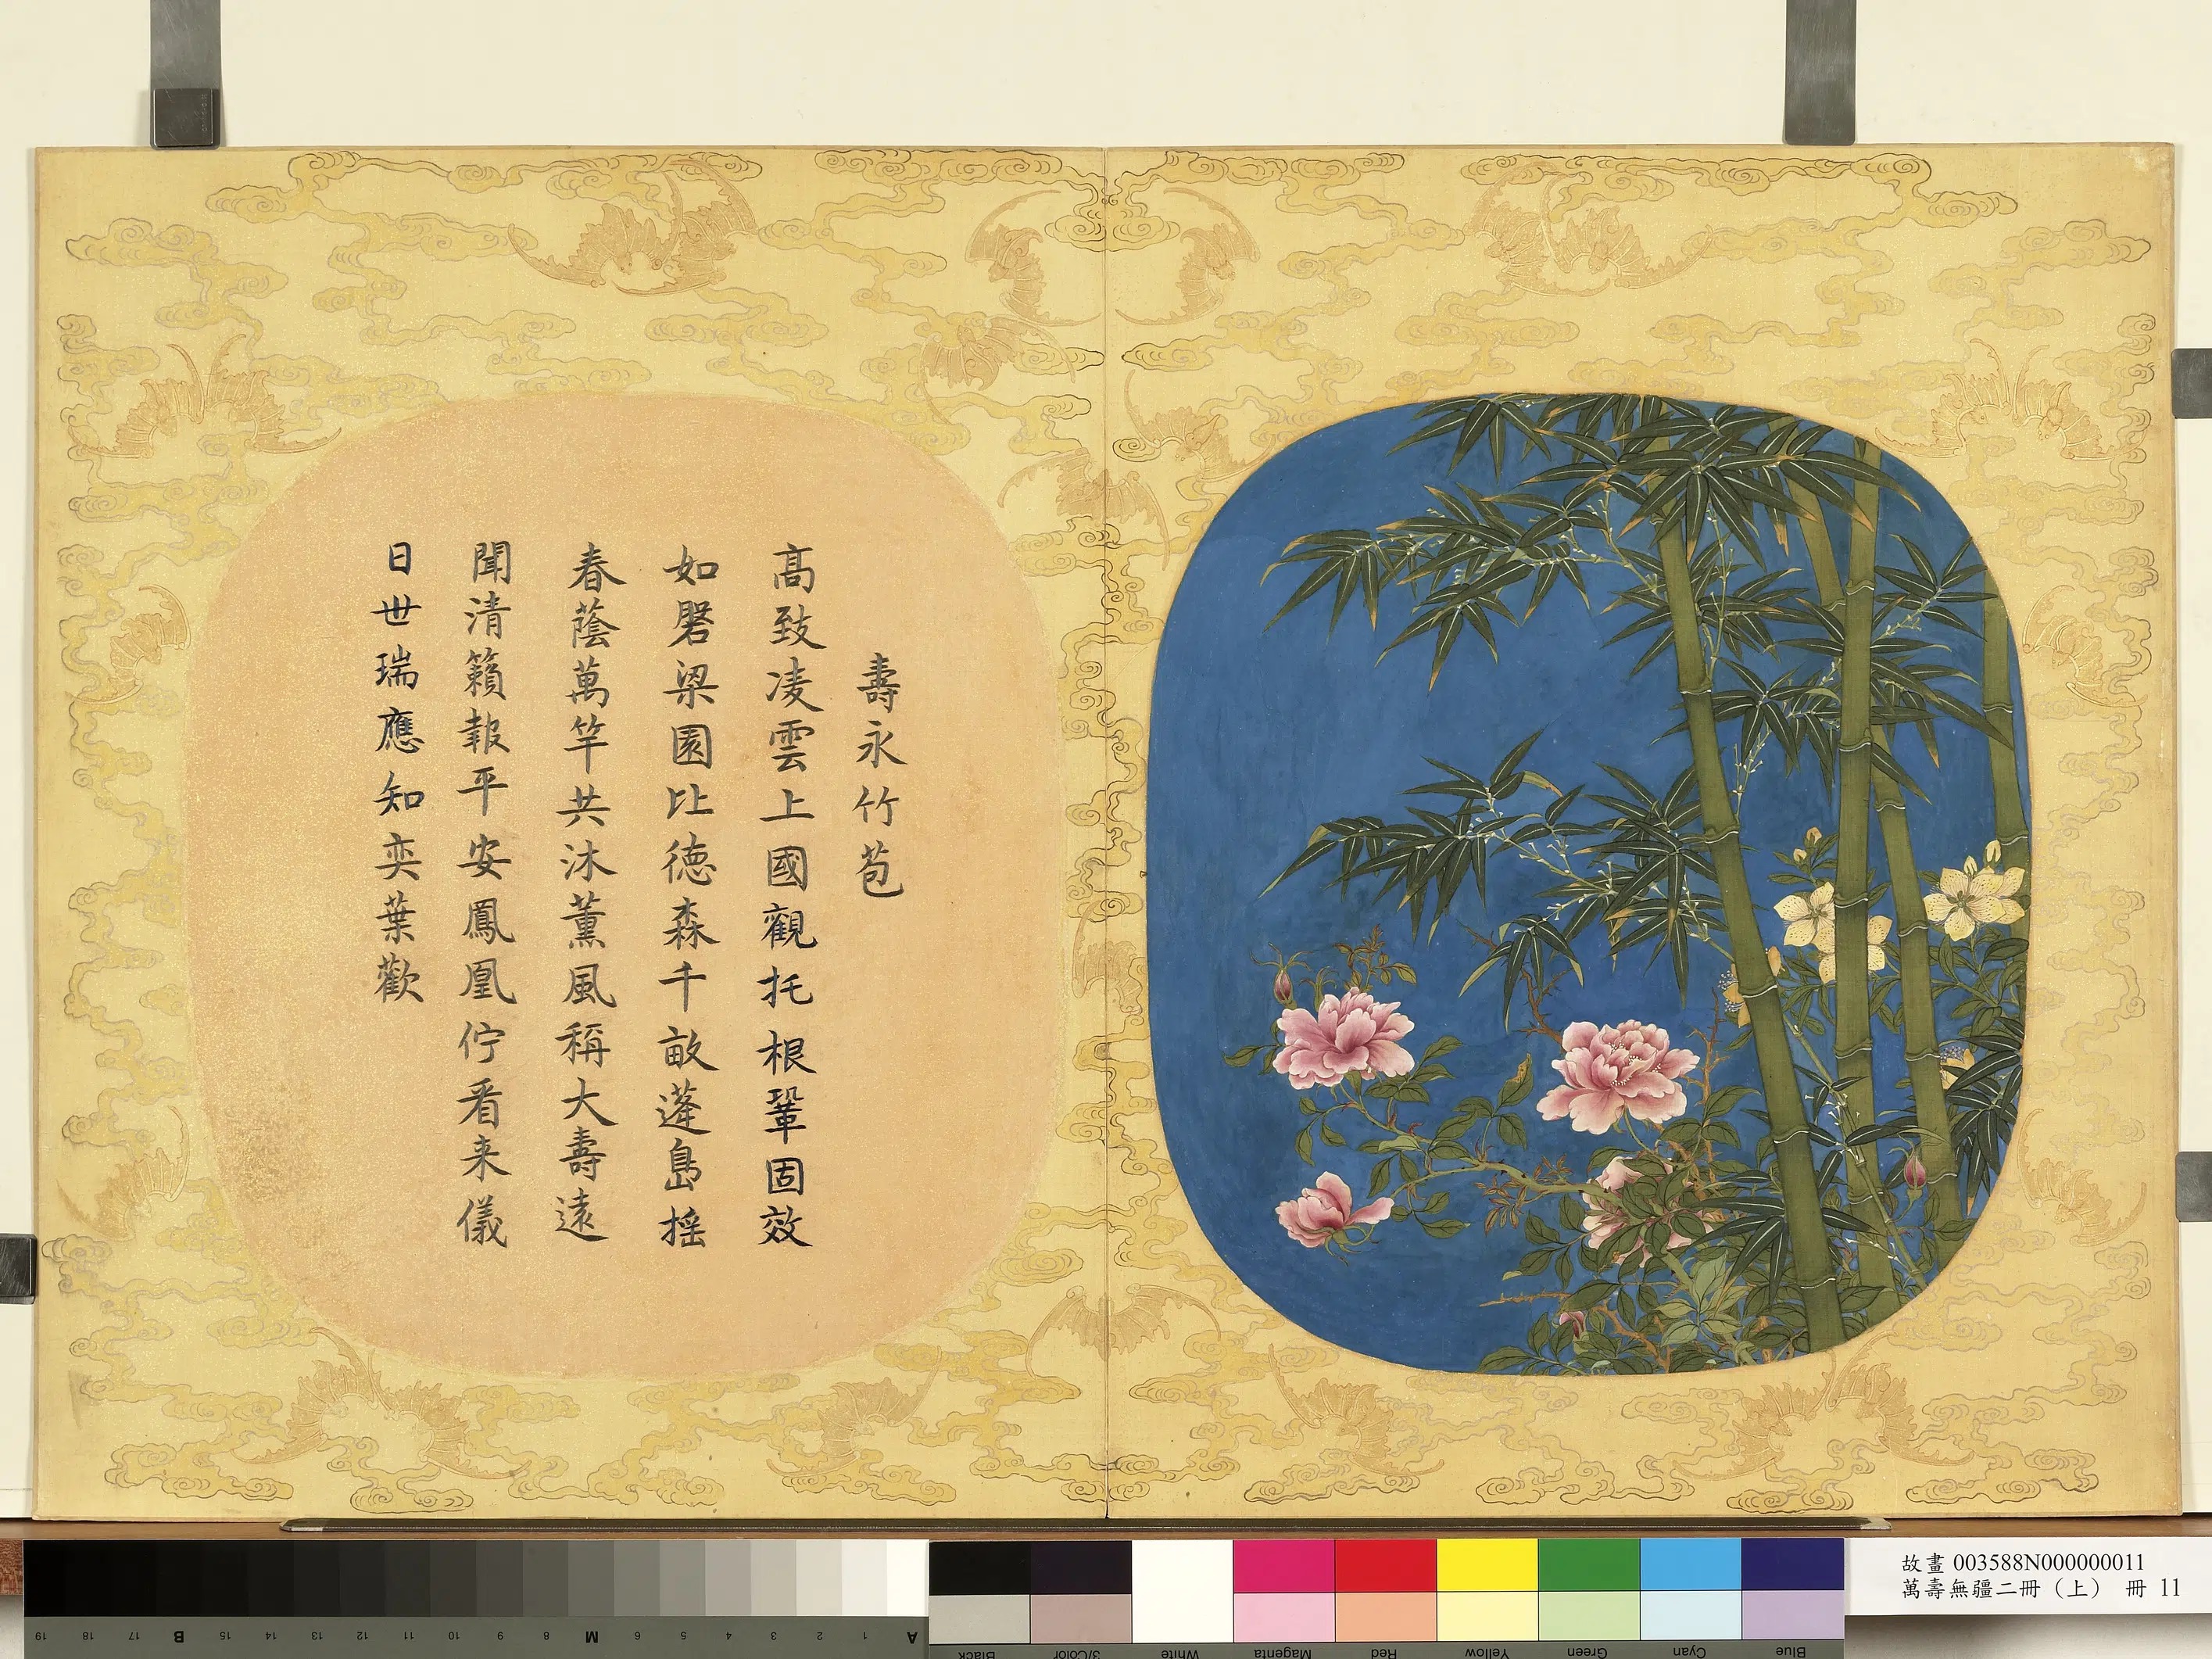 壽永竹苞
高致凌雲上國觀托根鞏固效
如磐梁園比德森千畝蓬島搖
春蔭萬竿共沐薰風稱大壽遠
聞清籟報平安鳳凰佇看来儀
日世瑞應知奕葉歡
故畫 003588N000000011
萬壽無疆二冊（上） 冊 11
19 18 17 B 15 14 13 12 11 10 9 8 M 6 5 4 3 2 1 A
Black 3/Color White Magenta Red Yellow Green Cyan Blue